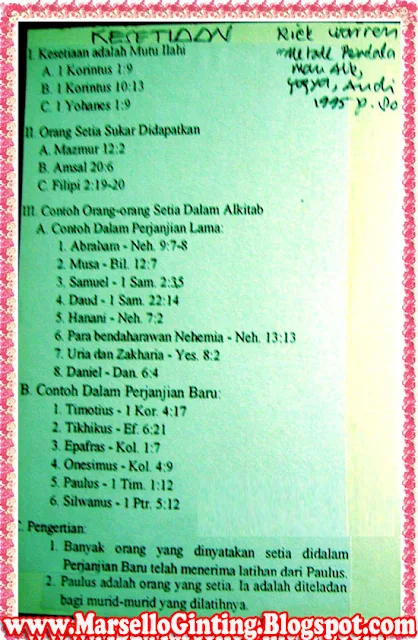 KESETIAAN
Rick Warren
Metode Pendala
man Alk,
Yogya, Andi
1995 p. 80
I. Kesetiaan adalah Mutu Ilahi
A. 1 Korintus 1:9
B. 1 Korintus 10:13
C. 1 Yohanes 1:9
II. Orang Setia Sukar Didapatkan
A. Mazmur 12:2
B. Amsal 20:6
C. Filipi 2:19-20
III. Contoh Orang-orang Setia Dalam Alkitab
A. Contoh Dalam Perjanjian Lama:
1. Abraham - Neh. 9:7-8
2. Musa - Bil. 12:7
3. Samuel - 1 Sam. 2:35
4. Daud - 1 Sam. 22:14
5. Hanani - Neh. 7:2
6. Para bendaharawan Nehemia - Neh. 13:13
7. Uria dan Zakharia - Yes. 8:2
8. Daniel - Dan. 6:4
B. Contoh Dalam Perjanjian Baru:
1. Timotius - 1 Kor. 4:17
2. Tikhikus - Ef. 6:21
3. Epafras - Kol. 1:7
4. Onesimus - Kol. 4:9
5. Paulus - 1 Tim. 1:12
6. Silwanus - 1 Ptr. 5:12
C. Pengertian:
1. Banyak orang yang dinyatakan setia didalam
Perjanjian Baru telah menerima latihan dari Paulus.
2. Paulus adalah orang yang setia. Ia adalah diteladan
bagi murid-murid yang dilatihnya.
www.MarselloGinting.Blogspot.com